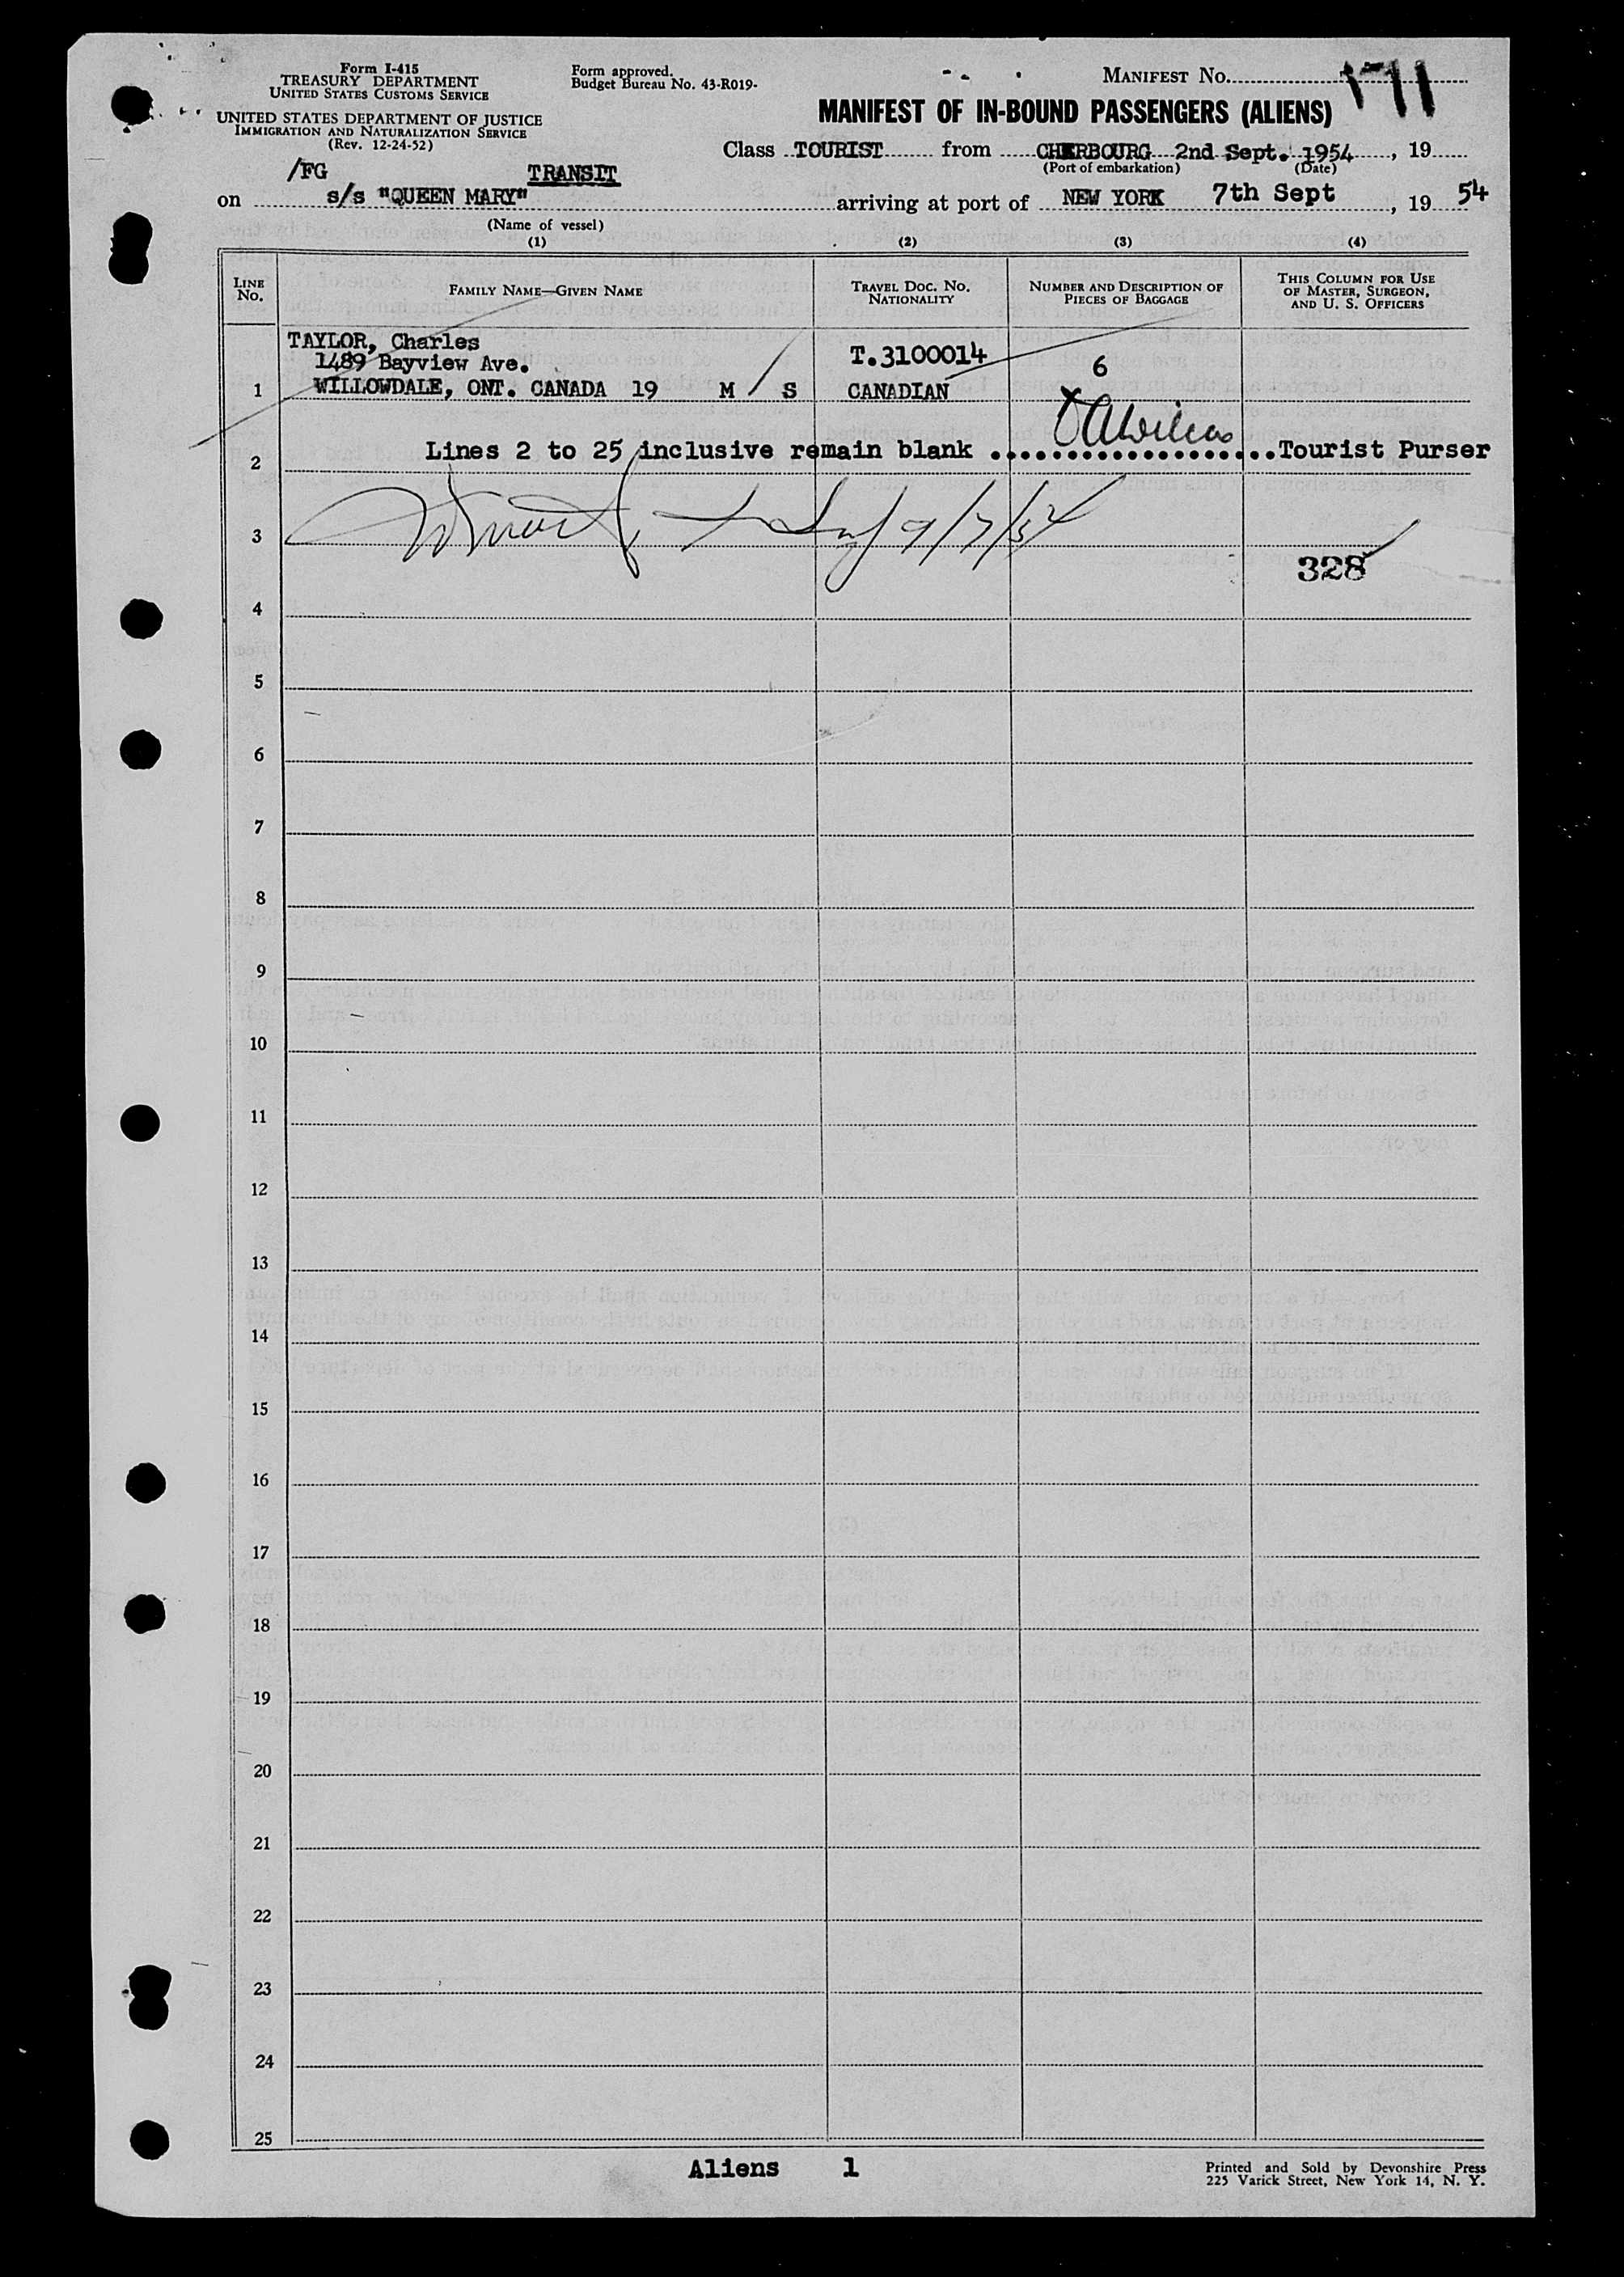 Form I-415
TREASURY DEPARTMENT
UNITED STATES CUSTOMS SERVICE
UNITED STATES DEPARTMENT OF JUSTICE
IMMIGRATION AND NATURALIZATION SERVICE
(Rev. 12-24-52)
Form approved.
Budget Bureau No. 43-R019-
MANIFEST NO. 171
MANIFEST OF IN-BOUND PASSENGERS (ALIENS)
Class TOURIST from CHERBOURG 2nd Sept. 1954, 19
(Port of embarkation) (Date)
/FG TRANSIT
on s/s "QUEEN MARY" arriving at port of NEW YORK 7th Sept, 19 54
(Name of vessel)
(1) (2) (3) (4)
LINE NO.
FAMILY NAME—GIVEN NAME
TRAVEL DOC. NO.
NATIONALITY
NUMBER AND DESCRIPTION OF
PIECES OF BAGGAGE
THIS COLUMN FOR USE
OF MASTER, SURGEON,
AND U. S. OFFICERS
TAYLOR, Charles
1489 Bayview Ave. T.3100014 6
1 WILLOWDALE, ONT. CANADA 19 M / S CANADIAN
2 Lines 2 to 25 inclusive remain blank ................... Tourist Purser
3 9/7/54
328
4
5
6
7
8
9
10
11
12
13
14
15
16
17
18
19
20
21
22
23
24
25
Aliens 1
Printed and Sold by Devonshire Press
225 Varick Street, New York 14, N. Y.